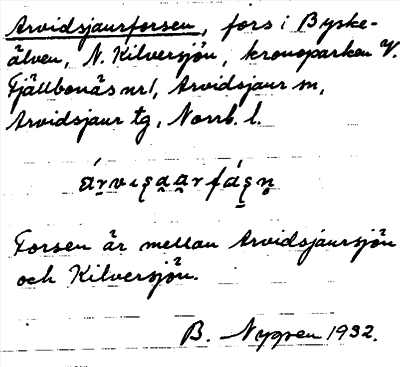 Arvidsjaurforsen, fors i Byske-
älven, N. Kilversjön, kronoparken V.
Fjällbonäs nr 1, Arvidsjaur sn,
Arvidsjaur tg, Norrb. l.
Forsen är mellan Arvidsjaursjön
och Kilversjön.
B. Nygren 1932.